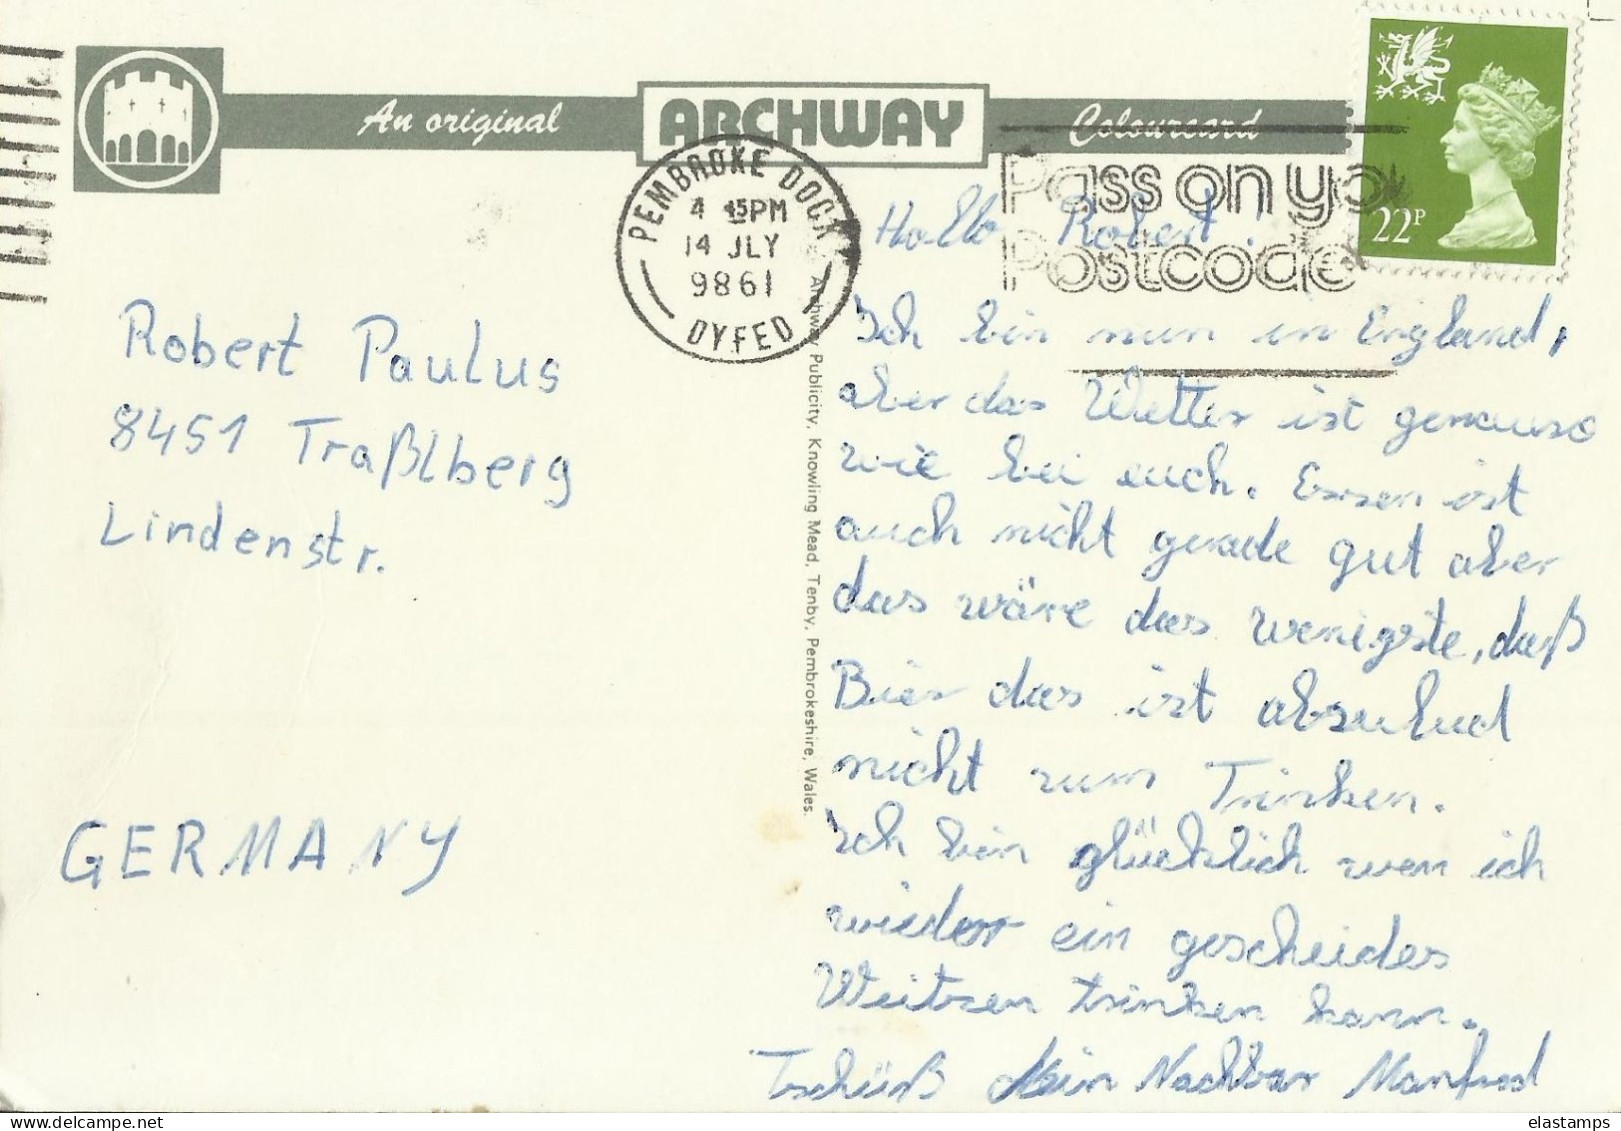 An original ARCHWAY Colourcard
PEMBROKE DOCK
4 45PM
14 JLY
9861
DYFED
Pass on yo
Postcode
22P
Robert Paulus
8451 Traßlberg
Lindenstr.
GERMANY
Archway Publicity, Knowling Mead, Tenby, Pembrokeshire, Wales.
Hallo Robert!
Ich bin nun in England,
aber das Wetter ist genauso
wie bei euch. Essen ist
auch nicht gerade gut aber
das wäre das wenigste, daß
Bier das ist absulud
nicht zum Trinken.
Ich bin glücklich wen ich
wieder ein gescheides
Weitzen trinken kann.
Tschüß Dein Nachbar Manfred
elastamps